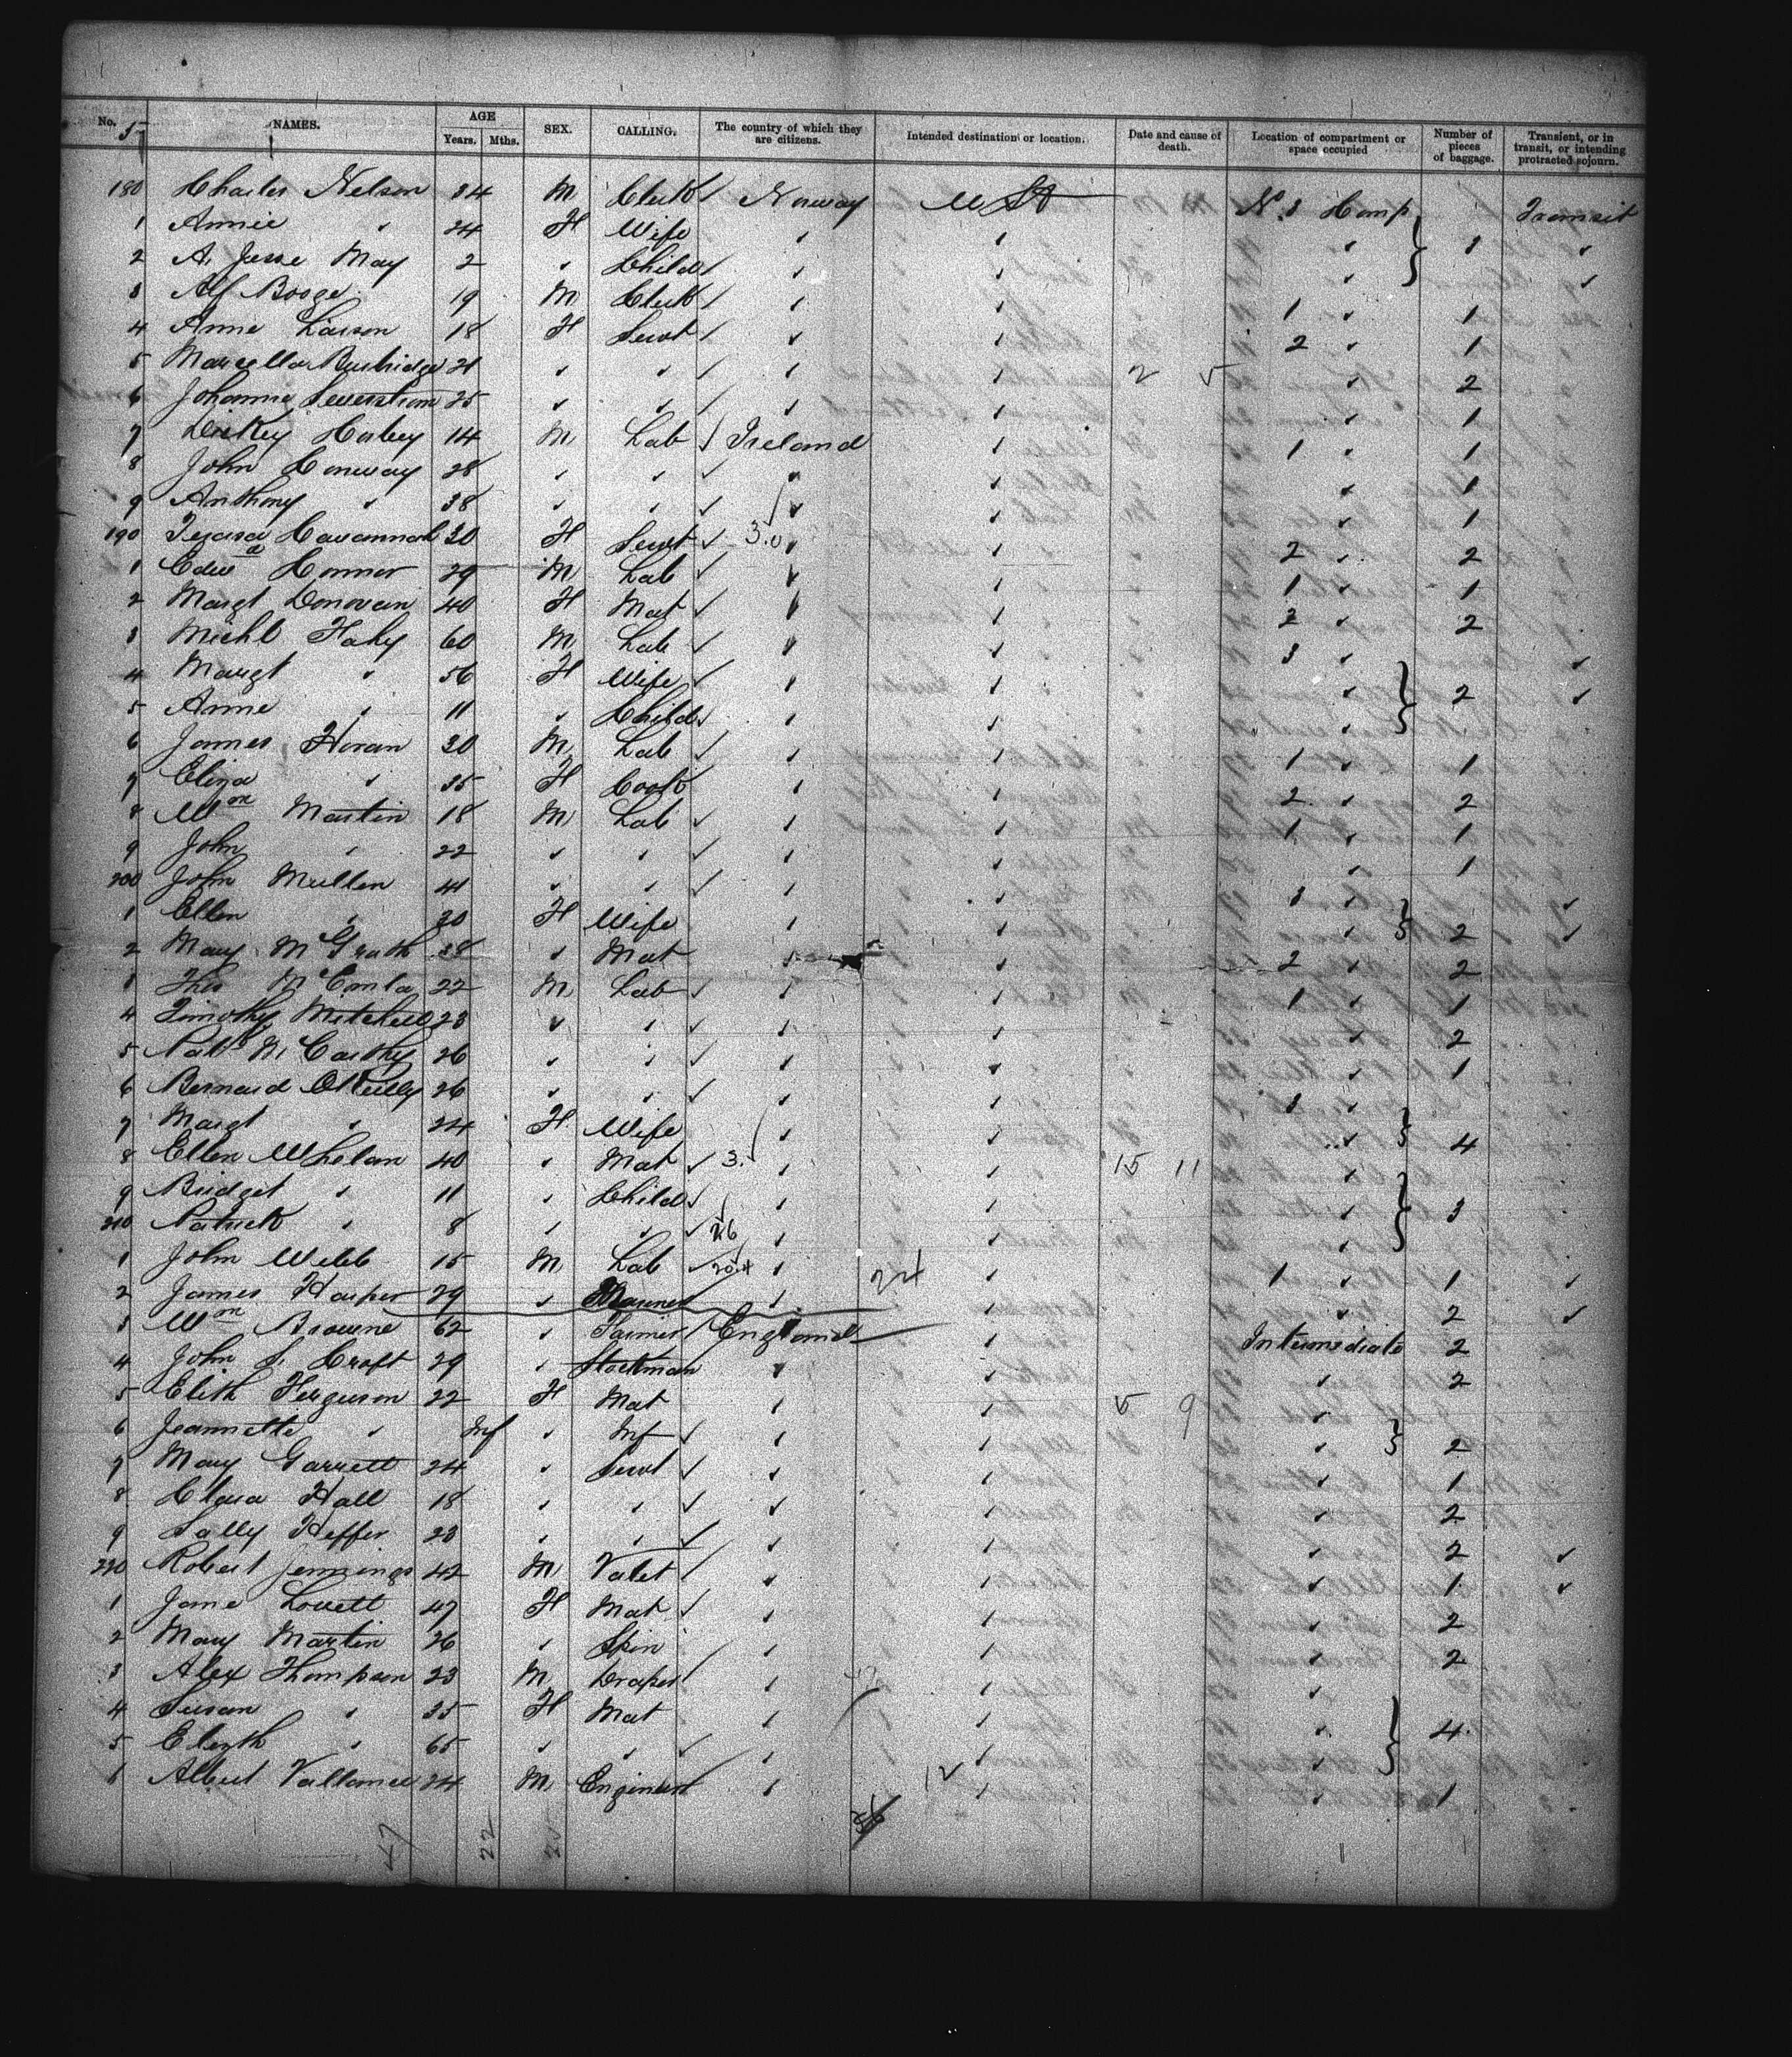 No. NAMES. AGE Years. Mths. SEX. CALLING. The country of which they are citizens. Intended destination or location. Date and cause of death. Location of compartment or space occupied Number of pieces of baggage. Transient, or in transit, or intending protracted sojourn.
5
180 Charles Nelson 34 M Clerk Norway U St No. 3 Comp Transit
1 Annie " 24 F Wife " " " 1 "
2 A. Jesse May 2 " Child " " " "
3 Alf Booge 19 M Clerk " " 1 " 1
4 Anne Larson 18 F Servt " " 2 " 1
5 Marcella Burbridge 21 " " " " " 2
6 Johanna 25 " " " " " 1
7 Dickey Harley 14 M Lab Ireland " 1 " 1
8 John Conway 28 " " " " " 1
9 Anthony " 38 " " " " " 1
190 Teresa Cavannah 30 F Servt " " 2 " 2
1 Edwd Connor 29 M Lab " " 1 " 1
2 Margt Donovan 40 F Mat " " 2 " 2
3 Michl Fahy 60 M Lab " " 3 " "
4 Margt " 56 F Wife " " " 2 "
5 Anne " 11 " Child " " "
6 James Horan 30 M Lab " " 1 " 1
7 Eliza " 35 F Cook " " 2 " 2
8 Wm Martin 18 M Lab " " 1 " 1
9 John " 22 " " " " " 1
200 John Mullen 41 " " " " 3 " "
1 Ellen " 30 F Wife " " " 2 "
2 Mary McGrath 38 " Mat " " 2 " 2
3 Thos 22 M Lab " " 1 " 1
4 Timothy Mitchell 23 " " " " " 2
5 Patk McCarthy 26 " " " " " 1
6 Bernard OReilly 26 " " " " 3 "
7 Margt " 24 F Wife " " " 4
8 Ellen Whelan 40 " Mat " " 15 11 "
9 Bridget " 11 " Child " " " 3
210 Patrick " 8 " " " " "
1 John Webb 15 M Lab " " 1 " 1 "
2 James Harper 29 " " 24 " " 2 "
3 Wm Browne 62 " Farmer England " Intermediate 2
4 John S. Croft 29 " Stockman " " " 2
5 Elith Ferguson 22 F Mat " " 5 9 "
6 Jeannette " Inf " Inf " " " 2
7 Mary Garrett 24 " Servt " " " 1
8 Clara Hall 18 " " " " " 2
9 Sally Heffer 23 " " " " " 2 "
220 Robert Jennings 42 M Valet " " " 1 "
1 Jane Lovett 47 F Mat " " " 2
2 Mary Martin 26 " Spin " " " 2
3 Alex Thompson 23 M Draper " " "
4 Susan " 35 F Mat " " " 4
5 Elizth " 65 " " " " "
6 Albert Vallance 24 M Engineer " " " 1
47 22 25